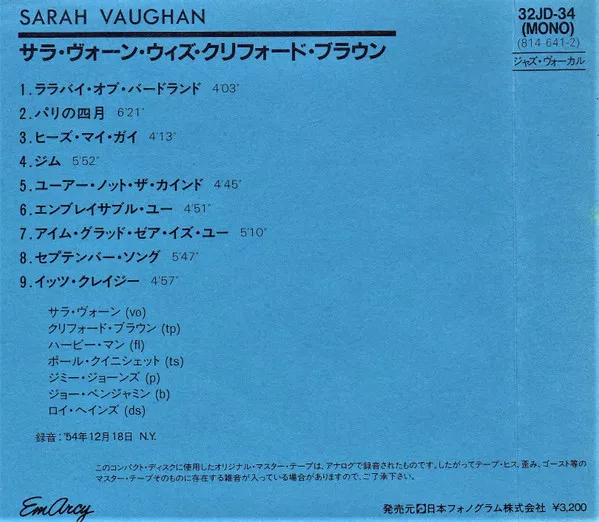 SARAH VAUGHAN
サラ・ヴォーン・ウィズ・クリフォード・ブラウン
32JD-34
(MONO)
(814 641-2)
ジャズ・ヴォーカル
1. ララバイ・オブ・バードランド 4'03"
2. パリの四月 6'21"
3. ヒーズ・マイ・ガイ 4'13"
4. ジム 5'52"
5. ユーアー・ノット・ザ・カインド 4'45"
6. エンブレイサブル・ユー 4'51"
7. アイム・グラッド・ゼア・イズ・ユー 5'10"
8. セプテンバー・ソング 5'47"
9. イッツ・クレイジー 4'57"
サラ・ヴォーン (vo)
クリフォード・ブラウン (tp)
ハービー・マン (fl)
ポール・クイニシェット (ts)
ジミー・ジョーンズ (p)
ジョー・ベンジャミン (b)
ロイ・ヘインズ (ds)
録音:'54年12月18日 N.Y.
このコンパクト・ディスクに使用したオリジナル・マスター・テープは、アナログで録音されたものです。したがってテープ・ヒス、歪み、ゴースト等の
マスター・テープそのものに存在する雑音が入っている場合がありますので、ご了承下さい。
EmArcy
発売元 日本フォノグラム株式会社 ¥3,200